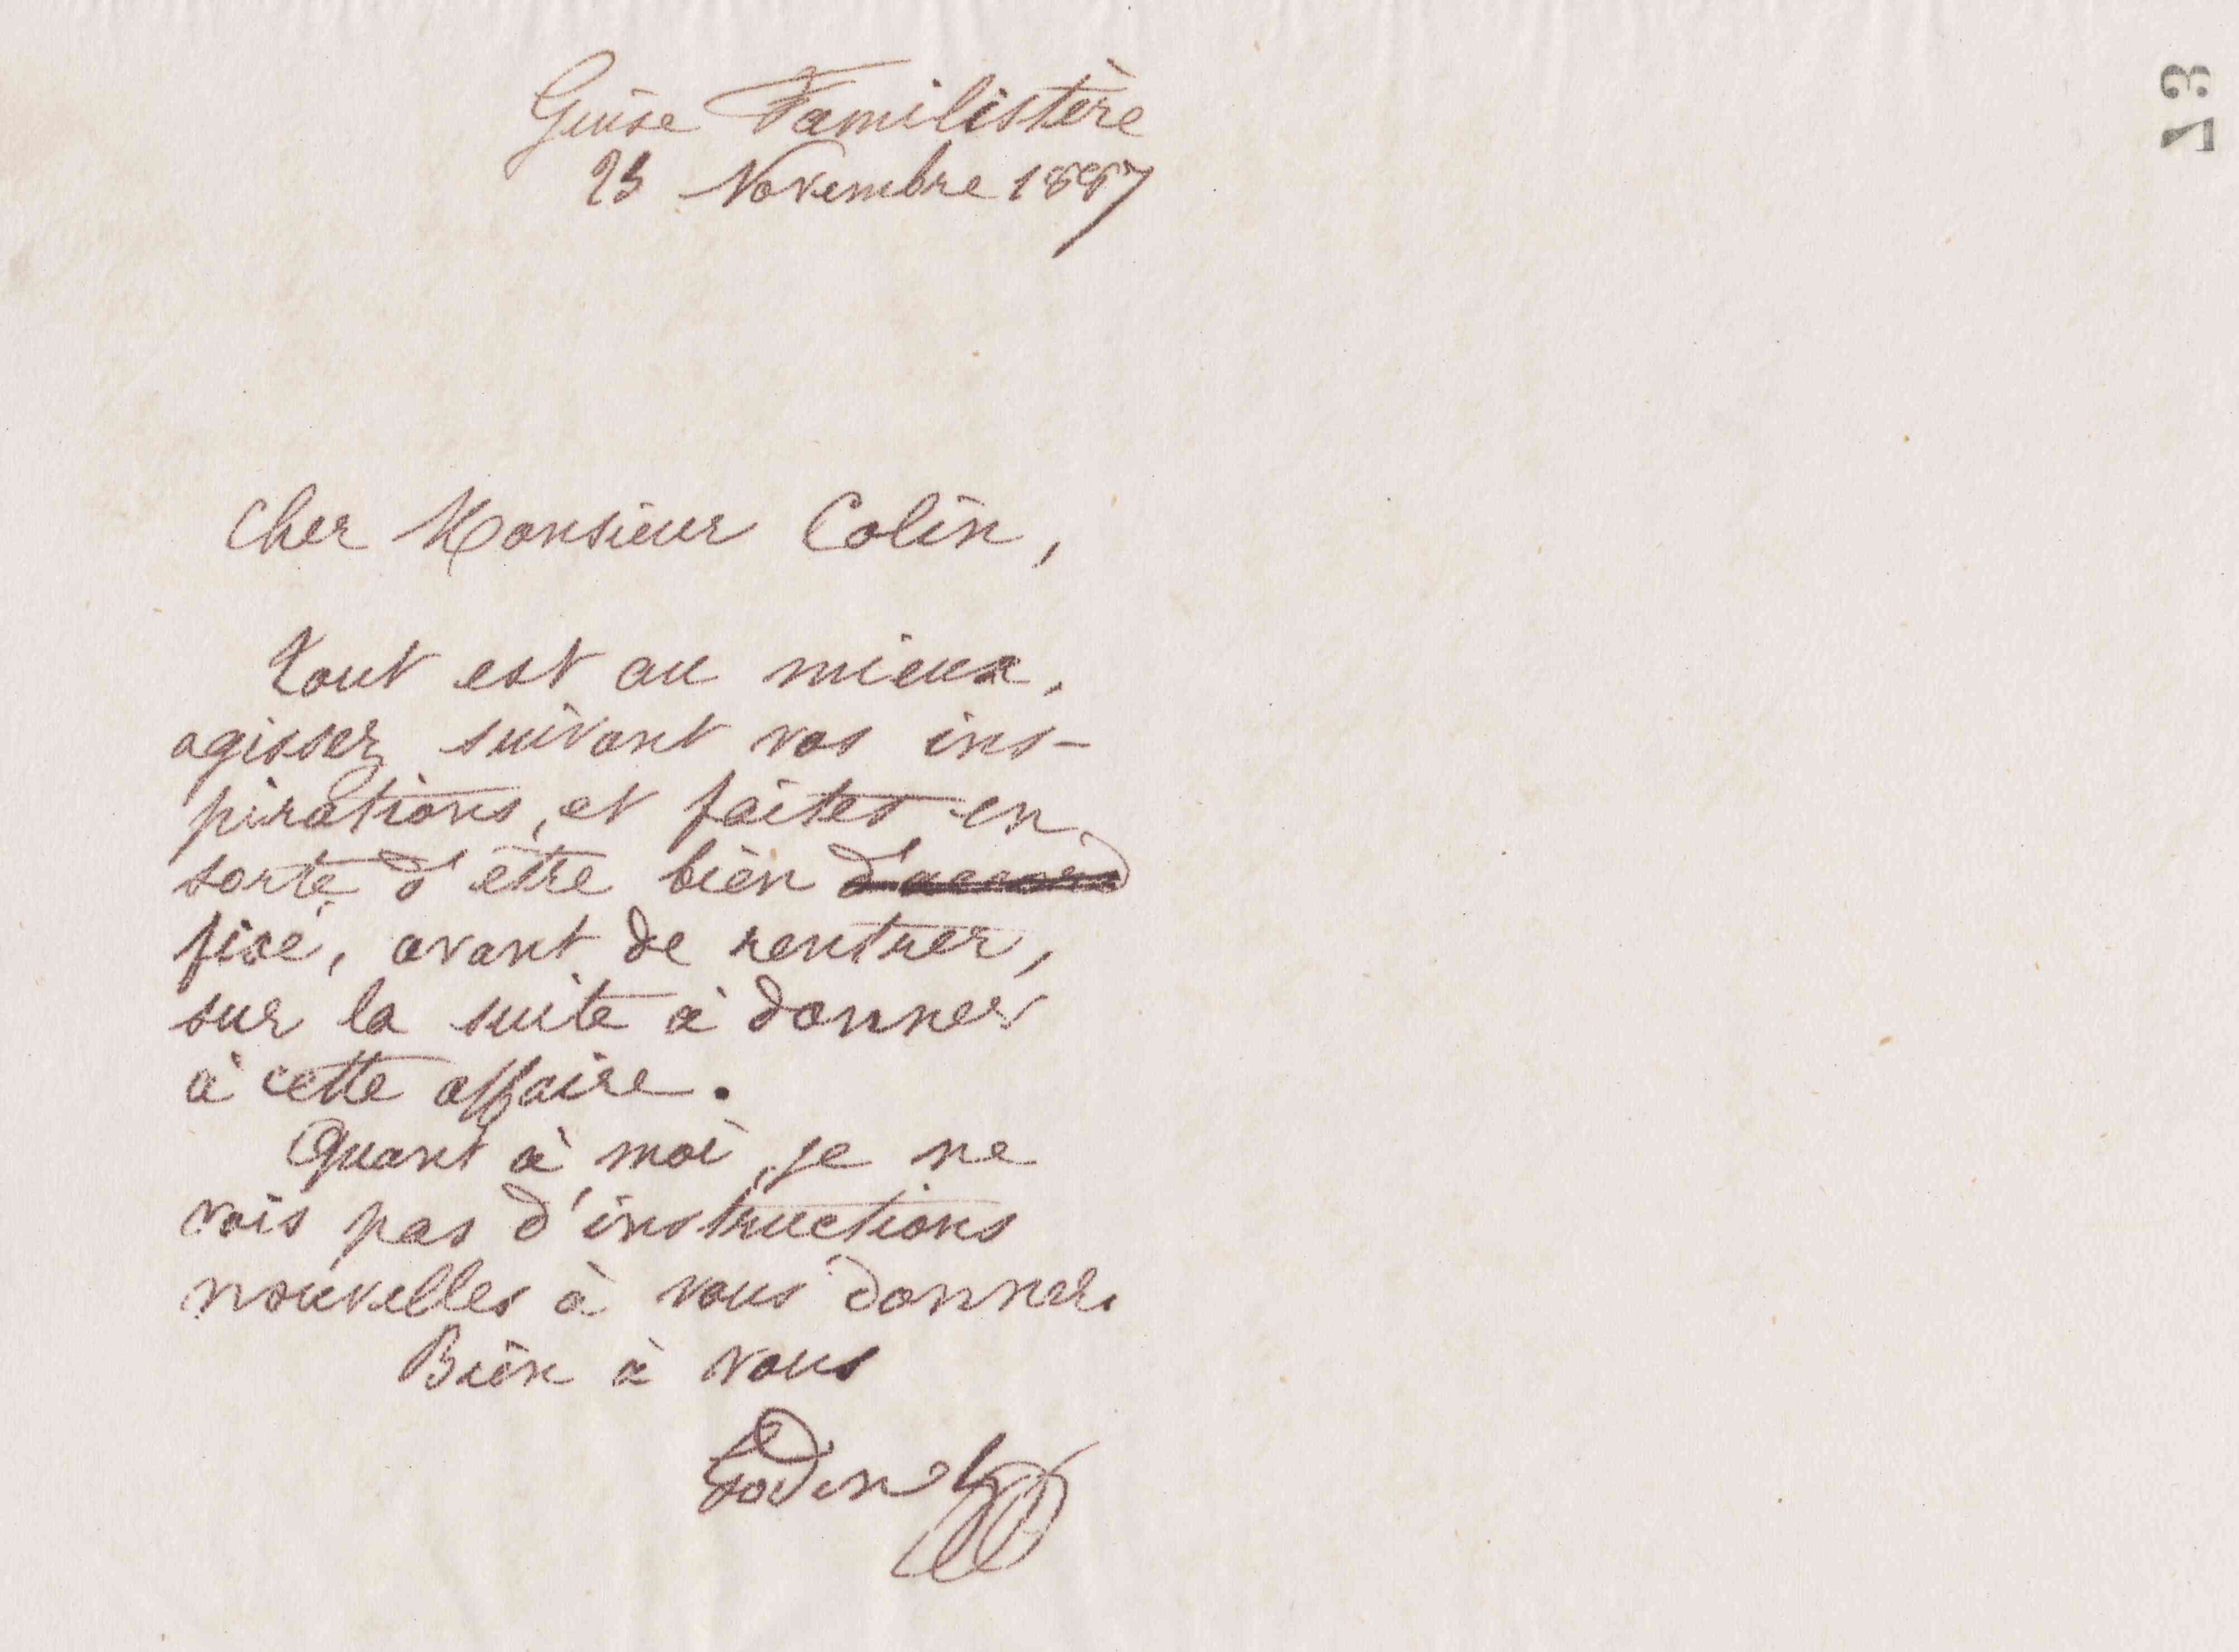 Guise Familistère
23 Novembre 1887
13
Cher Monsieur Colin,
tout est au mieux,
agissez suivant vos ins-
pirations, et faites en
sorte d'être bien d'accord
fixé, avant de rentrer,
sur la suite à donner
à cette affaire.
Quant à moi, je ne
vois pas d'instructions
nouvelles à vous donner.
Bien à vous
Godin